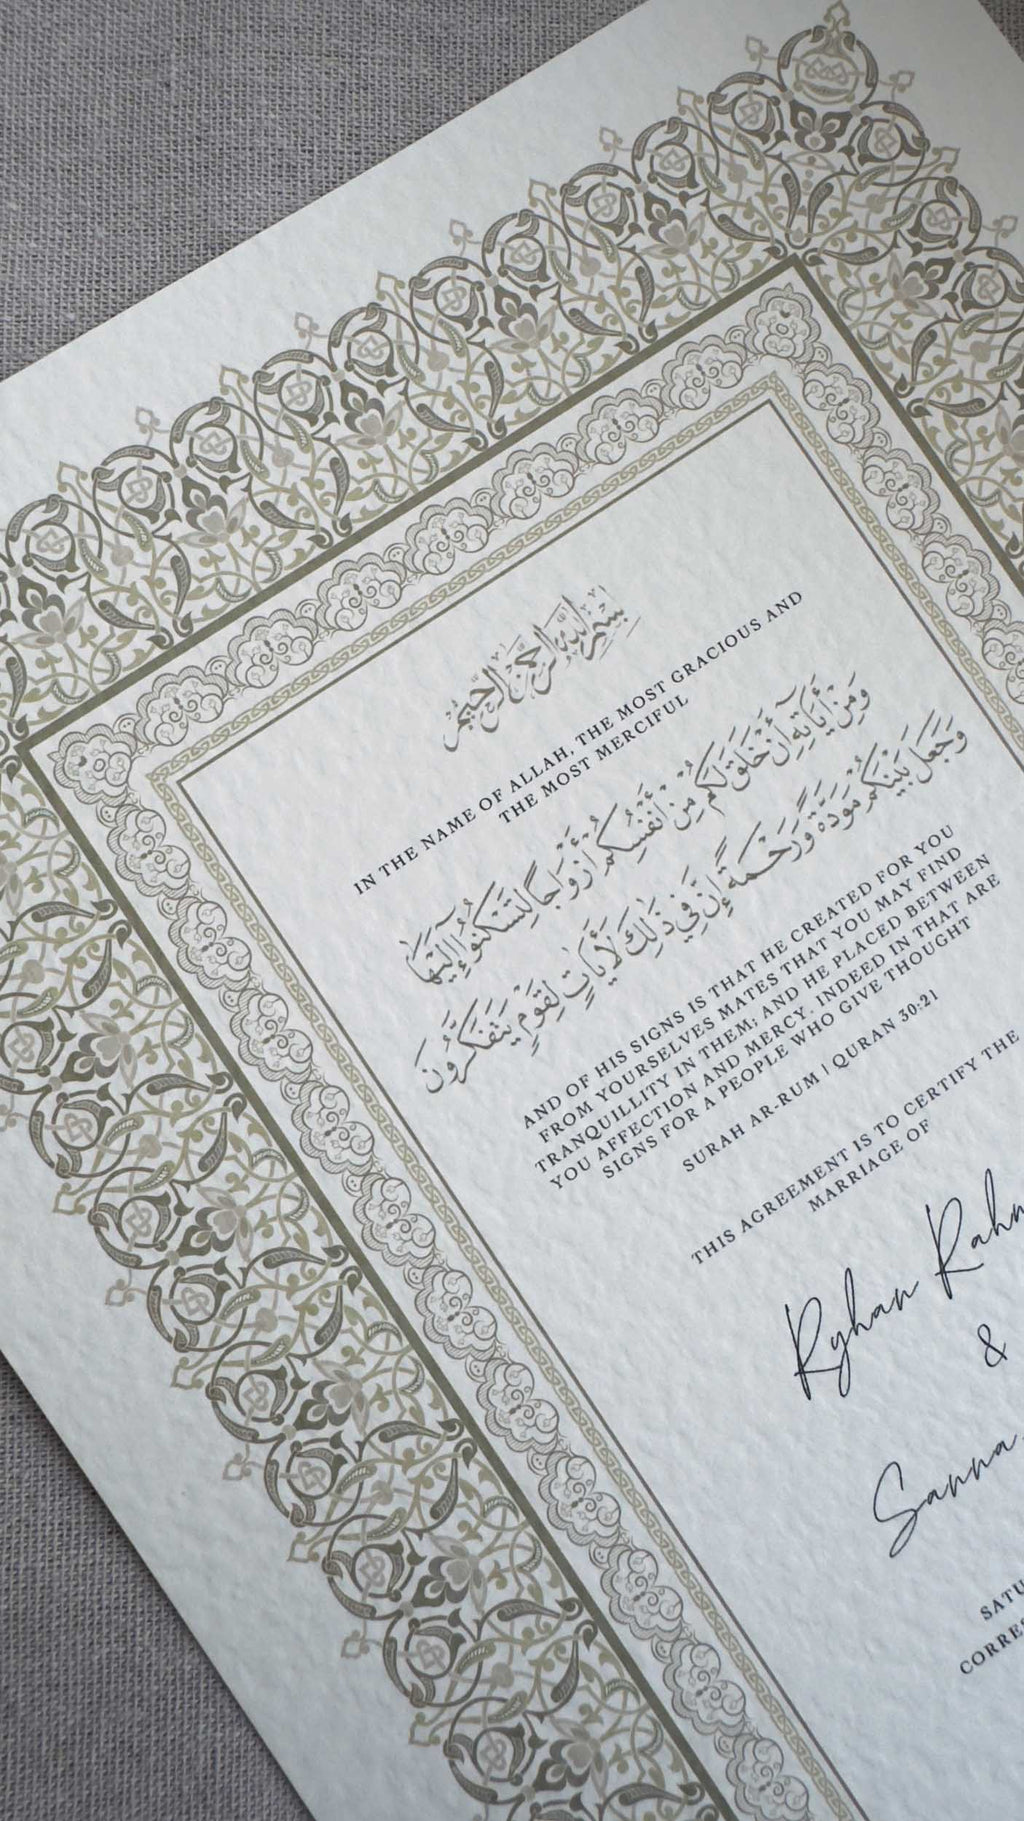 بِسْمِ اللَّهِ الرَّحْمَٰنِ الرَّحِيمِ
IN THE NAME OF ALLAH, THE MOST GRACIOUS AND
THE MOST MERCIFUL
وَمِنْ أَيَاتِهِ أَنْ خَلَقَ لَكُم مِّنْ أَنْفُسِكُمْ أَزْوَاجًا لِتَسْكُنُوا إِلَيْهَا
وَجَعَلَ بَيْنَكُمْ مَوَدَّةً وَرَحْمَةً إِنَّ فِي ذَلِكَ لَأَيَاتٍ لِقَوْمٍ يَتَفَكَّرُونَ
AND OF HIS SIGNS IS THAT HE CREATED FOR YOU
FROM YOURSELVES MATES THAT YOU MAY FIND
TRANQUILLITY IN THEM; AND HE PLACED BETWEEN
YOU AFFECTION AND MERCY, INDEED IN THAT ARE
SIGNS FOR A PEOPLE WHO GIVE THOUGHT
SURAH AR-RUM | QURAN 30:21
THIS AGREEMENT IS TO CERTIFY THE
MARRIAGE OF
Ryhan
&
Sanna